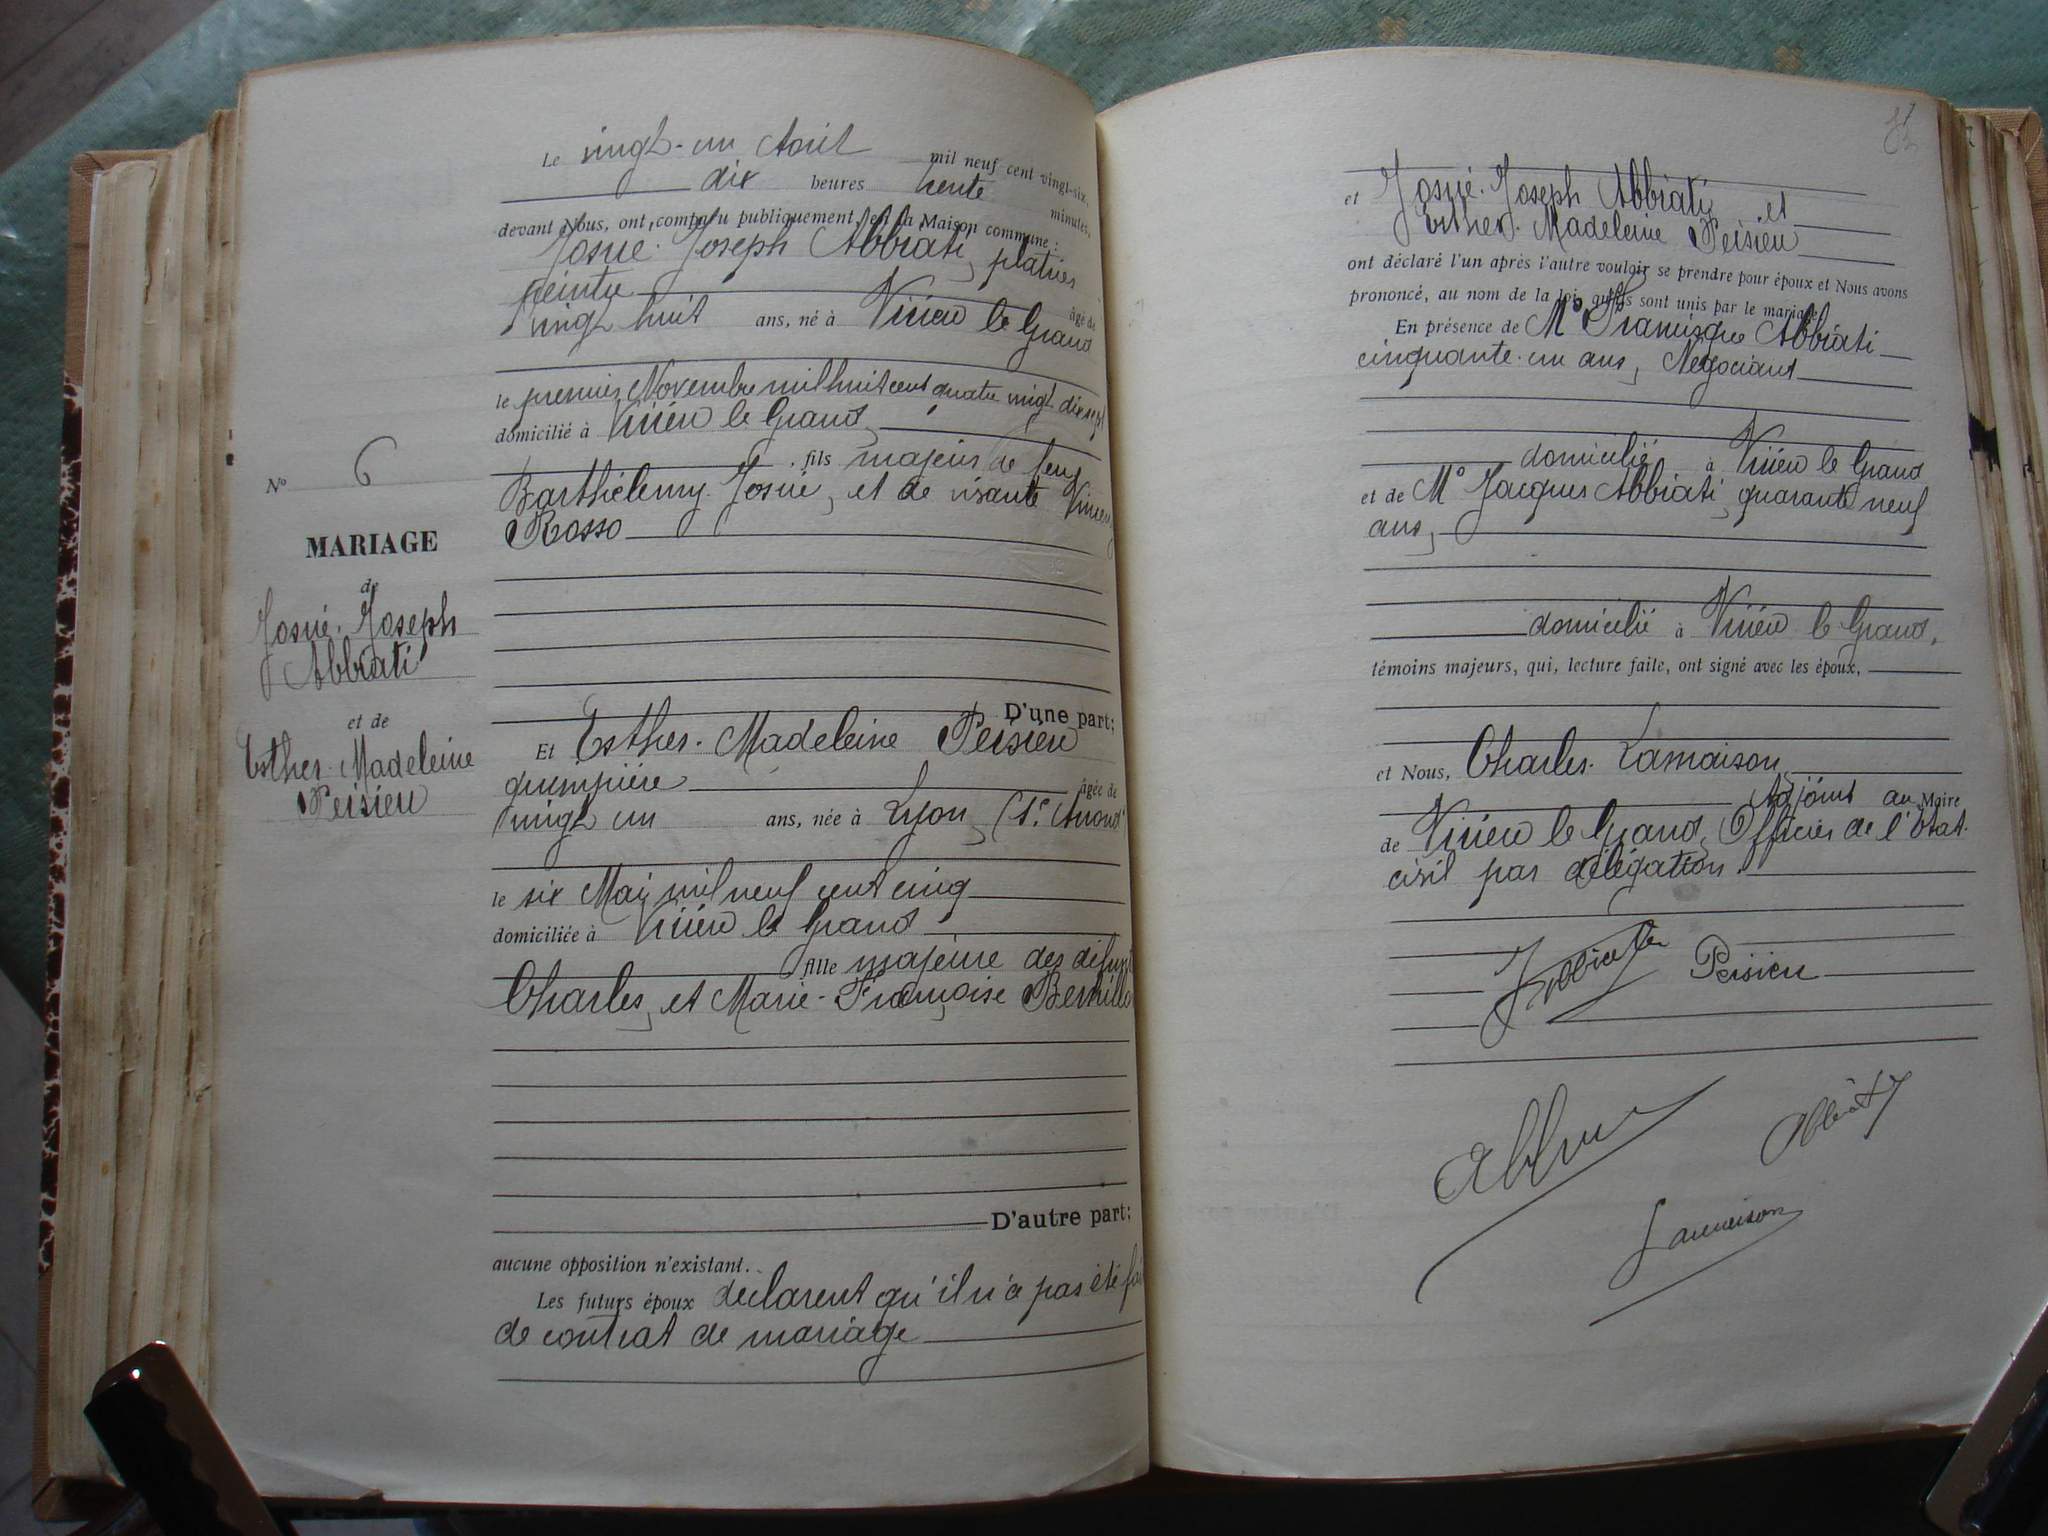 Le vingt-un Août mil neuf cent vingt-six,
dix heures trente minutes,
devant Nous, ont comparu publiquement en la Maison commune :
Josué-Joseph Abbiati, platrier
peintre âgé de
vingt huit ans, né à Virieu le Grand
le premier Novembre mil huit cent quatre vingt dix sept
domicilié à Virieu le Grand,
, fils majeur de feu
Barthélemy-Josué, et de vivante
Rosso
D'une part;
Et Esther-Madeleine Peisieu
guimpière âgée de
vingt un ans, née à Lyon, (1er Arrond
le six Mai mil neuf cent cinq
domiciliée à Virieu le Grand
fille majeure des défunts
Charles, et Marie-Françoise
D'autre part;
aucune opposition n'existant.
Les futurs époux déclarent qu'il n'a pas été fait
de contrat de mariage
N° 6
MARIAGE
de
Josué-Joseph
Abbiati
et de
Esther-Madeleine
Peisieu
et Josué-Joseph Abbiati et
Esther-Madeleine Peisieu
ont déclaré l'un après l'autre vouloir se prendre pour époux et Nous avons
prononcé, au nom de la loi, qu'ils sont unis par le mariage.
En présence de Mr Francisque Abbiati
cinquante-un ans, Négociant
domicilié à Virieu le Grand
et de Mr Jacques Abbiati, quarante neuf
ans,
domicilié à Virieu le Grand,
témoins majeurs, qui, lecture faite, ont signé avec les époux,
et Nous, Charles-Lamaison,
Adjoint au Maire
de Virieu le Grand, Officier de l'État-
civil par délégation.
Peisieu
Abbiati
Lamaison